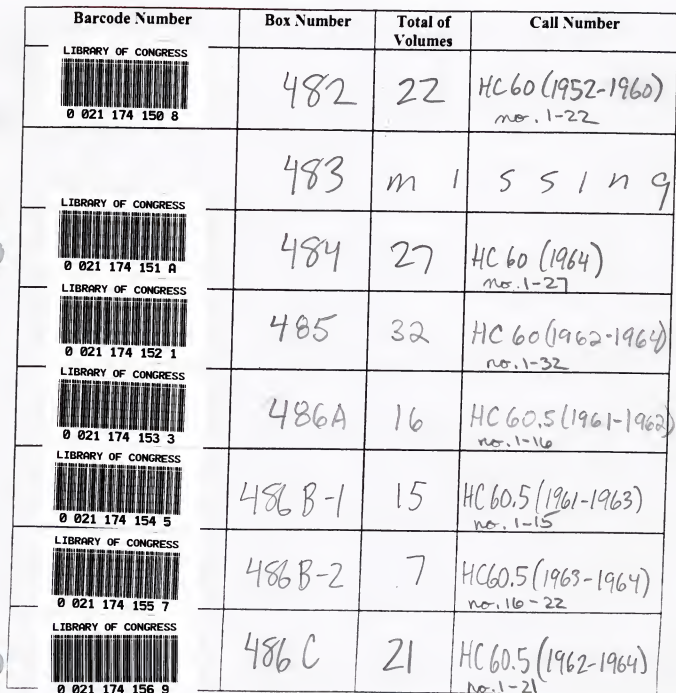 Barcode Number Box Number Total of Volumes Call Number
LIBRARY OF CONGRESS
0 021 174 150 8
482 22 HC60 (1952-1960)
no. 1-22
483 m i s s i n g
LIBRARY OF CONGRESS
0 021 174 151 A
484 27 HC 60 (1964)
no. 1-27
LIBRARY OF CONGRESS
0 021 174 152 1
485 32 HC 60 (1962-1964)
no. 1-32
LIBRARY OF CONGRESS
0 021 174 153 3
486A 16 HC 60.5 (1961-1962)
no. 1-16
LIBRARY OF CONGRESS
0 021 174 154 5
486 B-1 15 HC 60.5 (1961-1963)
no. 1-15
LIBRARY OF CONGRESS
0 021 174 155 7
486 B-2 7 HC60.5 (1963-1964)
no. 16-22
LIBRARY OF CONGRESS
0 021 174 156 9
486 C 21 HC 60.5 (1962-1964)
no. 1-21